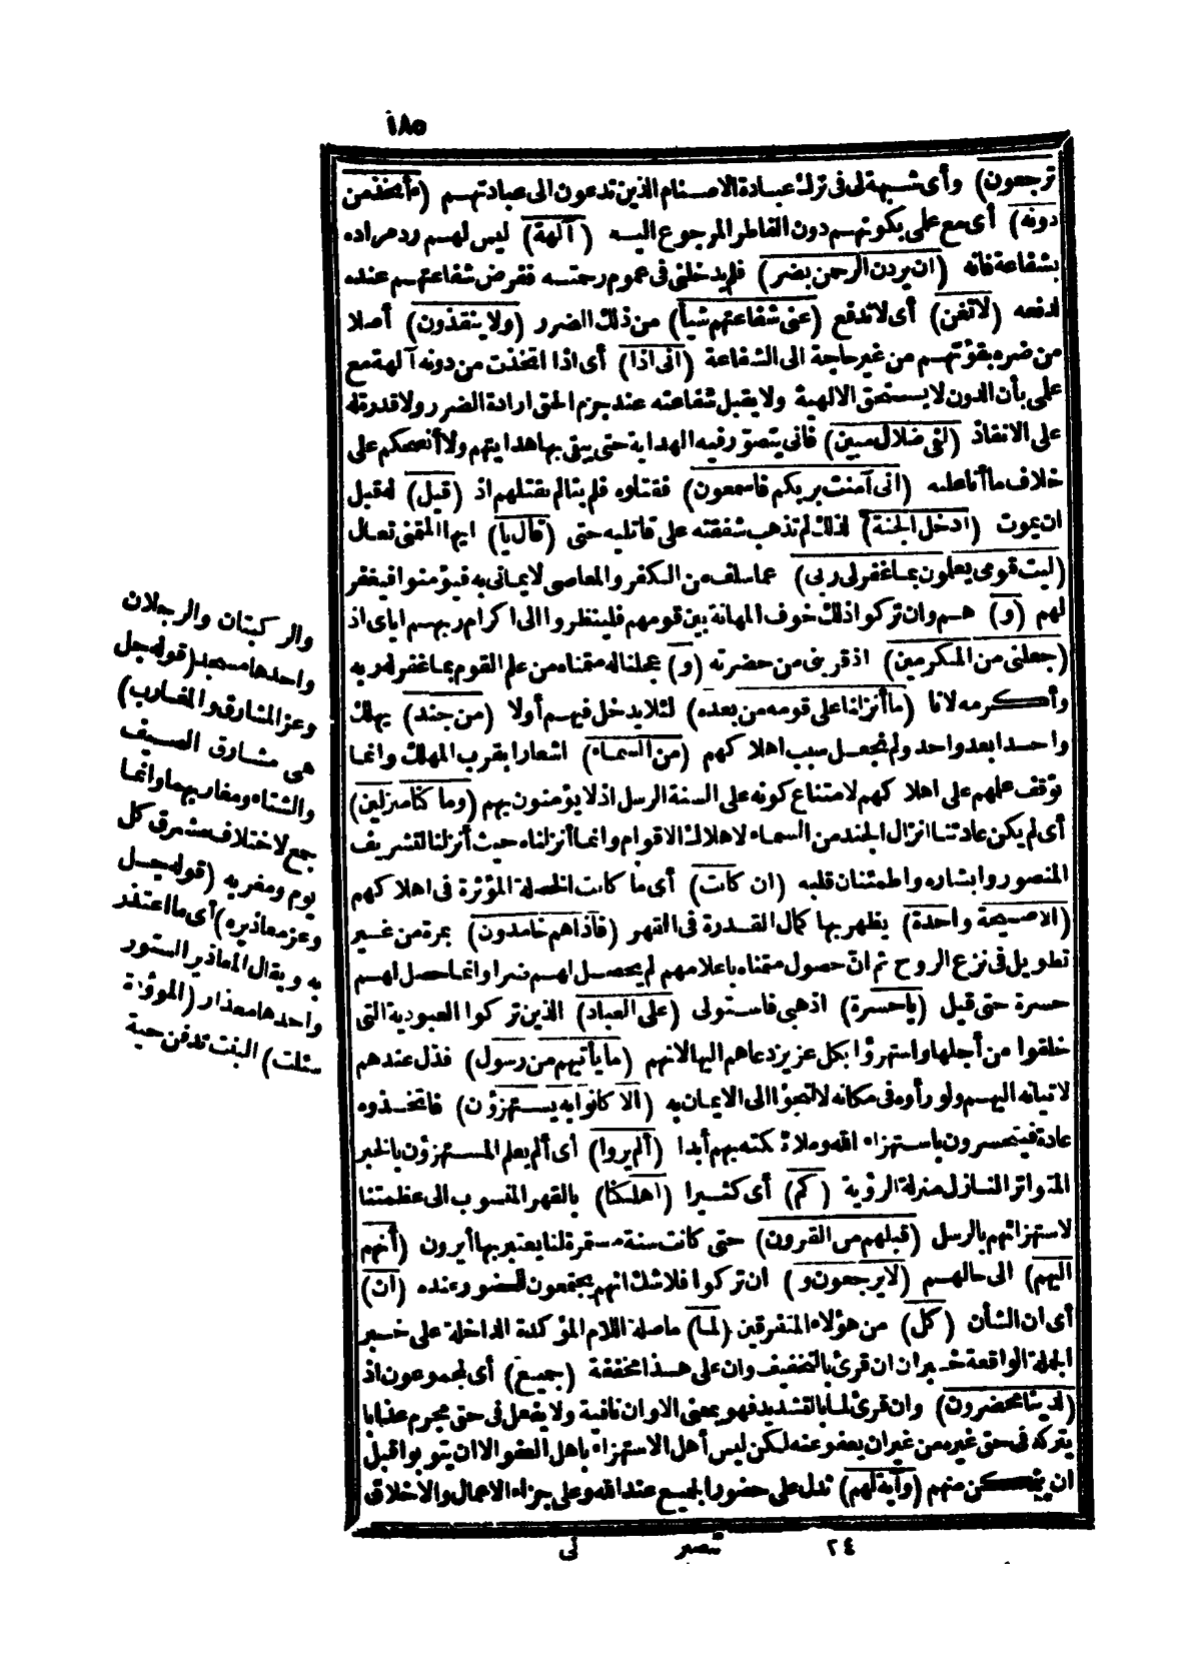 ١٨٥
ترجعون) وأى شبهة لى فى ترك عبادة الاصنام الذين تدعون الى عبادتهم (أأتخذ من
دونه) أى مع علمى بكونهم دون الفاطر المرجوع اليه (آلهة) ليس لهم رد مراده
بشفاعة فانه (ان يردن الرحمن بضر) فلم يدخلنى فى عموم رحمته ففرض شفاعتهم عنده
لدفعه (لا تغن) أى لا تدفع (عنى شفاعتهم شيأ) من ذلك الضرر (ولا ينقذون) أصلا
من ضره بقوتهم من غير حاجة الى الشفاعة (انى اذا) أى اذا اتخذت من دونه آلهة مع
علمى بأن الدون لا يستحق الالهية ولا يقبل شفاعته عند جزم الحق ارادة الضرر ولا قدرة له
على الانقاذ (لفى ضلال مبين) فانى يتصور فيه الهداية حتى يبقى بها هدايتهم ولا أنصحكم على
خلاف ما أنا عليه (انى آمنت بربكم فاسمعون) فقتلوه فلم يتألم بقتلهم اذ (قيل) له قبل
ان يموت (ادخل الجنة) لذلك لم تذهب شفقته على قاتليه حتى (قال يا) ايها المقتى تعال
(ليت قومى يعلون بما غفر لى ربى) عما سلف من الكفر والمعاصى لايمانى به فيؤمنوا فيغفر
لهم (و) هم وان تركوا ذلك خوف المهانة بين قومهم فلينظروا الى اكرام ربهم اياى اذ
(جعلنى من المكرمين) اذ قربنى من حضرته (و) عجلنا له متمناه من علم القوم بما غفر له ربه
وأكرمه لانا (ما أنزلنا على قومه من بعده) لئلا يدخل فيهم أولا (من جند) يهلك
واحدا بعد واحد ولم نجعل سبب اهلاكهم (من السماء) اشعارا بقرب المهلك وانما
توقف علمهم على اهلاكهم لامتناع كونه على السنة الرسل اذ لا يؤمنون بهم (وما كنا منزلين)
أى لم يكن عادتنا انزال الجند من السماء لاهلاك الاقوام وانما أنزلناه حيث أنزلنا لتشريف
المنصور وابشاره واطمئنان قلبه (ان كانت) أى ما كانت الخصلة المؤثرة فى اهلاكهم
(الاصيحة واحدة) يظهر بها كمال القدرة فى القهر (فاذاهم خامدون) بمرة من غير
تطويل فى نزع الروح ثم ان حصول متمناه باعلامهم لم يحصل لهم نصرا وانما حصل لهم
حسرة حتى قيل (ياحسرة) اذهبى فاستولى (على العباد) الذين تركوا العبودية التى
خلقوا من أجلها واستهزؤا بكل عزيز دعاهم اليها لانهم (ما يأتيهم من رسول) فذل عندهم
لاتيانه اليهم ولو رأوه فى مكانه لالتجؤا الى الايمان به (الا كانوا به يستهزؤن) فاتخذوه
عادة فيتحسرون باستهزاء الله وملائكته بهم أبدا (ألم يروا) أى ألم يعلم المستهزؤن بالخبر
المتواتر النازل منزلة الرؤية (كم) أى كثيرا (أهلكنا) بالقهر المنسوب الى عظمتنا
لاستهزائهم بالرسل (قبلهم من القرون) حتى كانت سنة مستمرة لنا يعتبر بها أيرون (أنهم
اليهم) الى حالهم (لا يرجعون و) ان تركوا فلا شك انهم يجتمعون للحضور عنده (ان)
أى ان الشأن (كل) من هؤلاء المتفرقين (لما) ما صلة اللام المؤكدة الداخلة على خبر
الجملة الواقعة خبر ان ان قرئ بالتخفيف وان على هذا مخففة (جميع) أى لمجموعون اذ
(لدينا محضرون) وان قرئ لما بالتشديد فهو بمعنى الا وان نافية ولا يفعل فى حق مجرم عذابا
يتركه فى حق غيره من غير ان يعفو عنه لكن ليس أهل الاستهزاء باهل العفو الا ان يتوبوا قبل
ان يتمكن منهم (وآية لهم) تدل على حضور الجميع عند الله وعلى جزاء الاعمال والاخلاق
والركبتان والرجلان
واحدها مسجد (قوله جل
وعز المشارق والمغارب)
هى مشارق الصيف
والشتاء ومغاربهما وانما
جمع لاختلاف مشرق كل
يوم ومغربه (قوله جل
وعز معاذيره) أى ما اعتذر
به ويقال المعاذير الستور
واحدها معذار (الموؤدة
سئلت) البنت تدفن حية
٢٤ تبصير نى